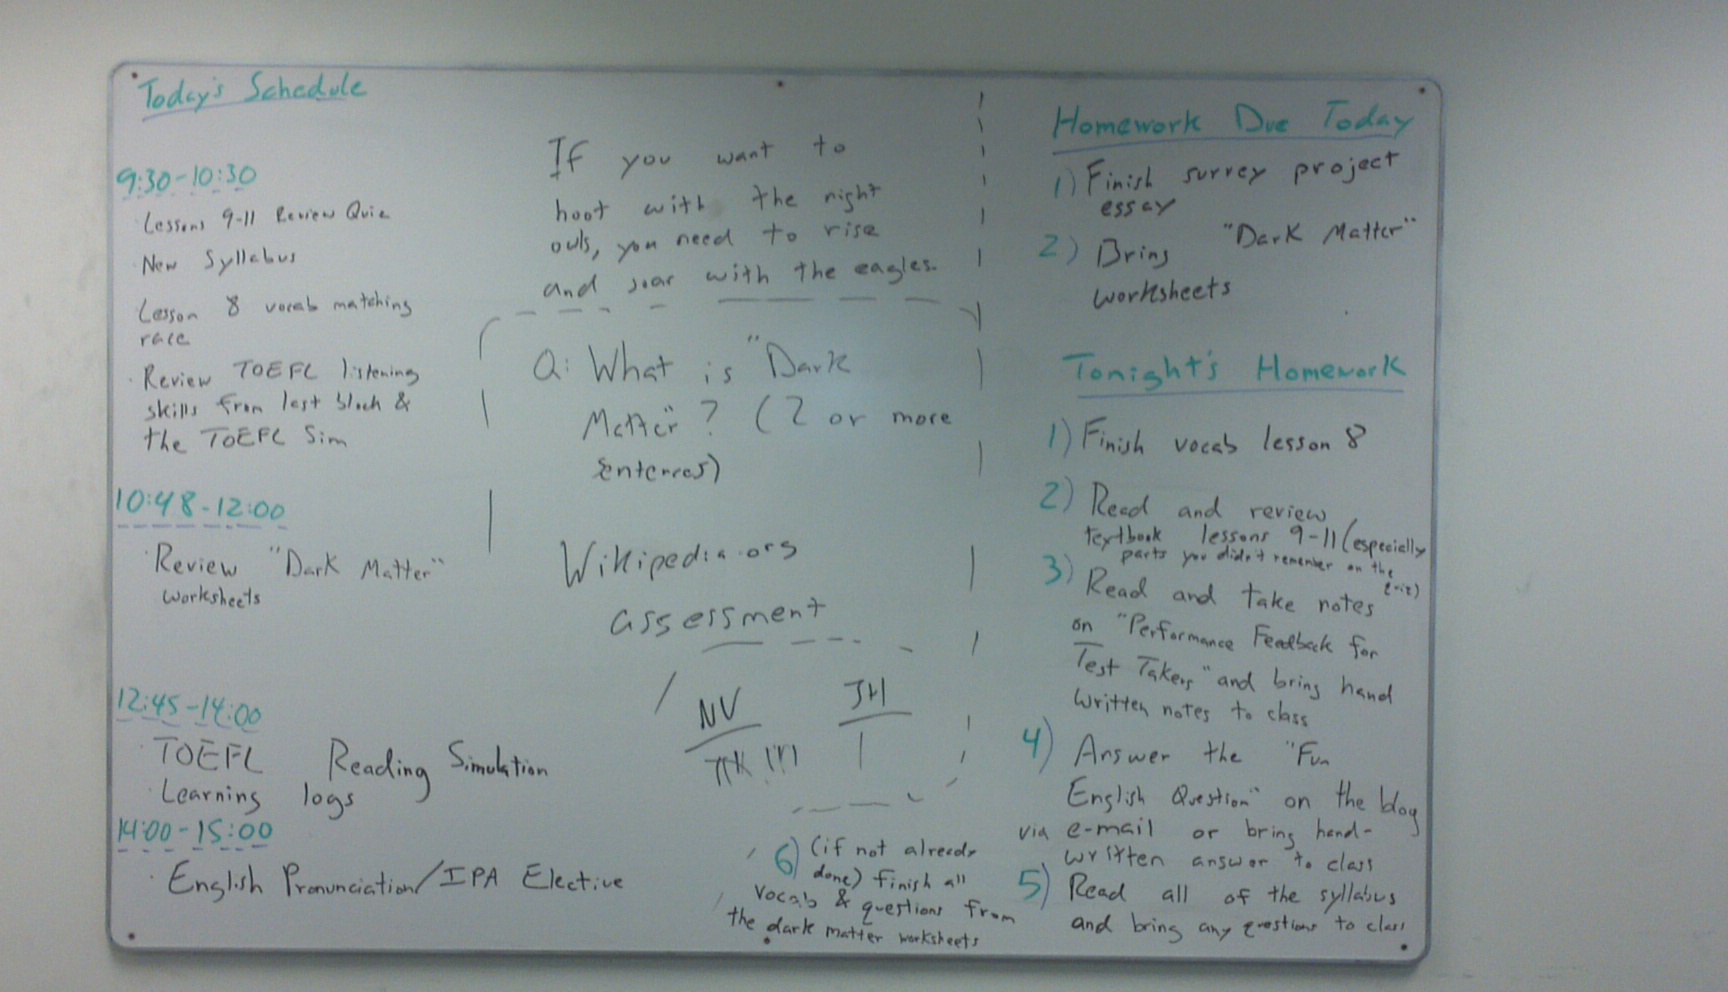 Today's Schedule
9:30-10:30
· Lessons 9-11 Review Quiz
· New Syllabus
· Lesson 8 vocab matching
race
· Review TOEFL listening
skills from last block &
the TOEFL Sim
10:48-12:00
· Review "Dark Matter"
worksheets
12:45-14:00
· TOEFL Reading Simulation
· Learning logs
14:00-15:00
· English Pronunciation/IPA Elective
If you want to
hoot with the night
owls, you need to rise
and soar with the eagles.
Q: What is "Dark
Matter"? (2 or more
sentences)
Wikipedia.org
assessment
NV JH
Homework Due Today
1) Finish survey project
essay
2) Bring "Dark Matter"
worksheets
Tonight's Homework
1) Finish vocab lesson 8
2) Read and review
textbook lessons 9-11 (especially
parts you didn't remember on the
quiz)
3) Read and take notes
on "Performance Feedback for
Test Takers" and bring hand
written notes to class
4) Answer the "Fun
English Question" on the blog
via e-mail or bring hand-
written answer to class
5) Read all of the syllabus
and bring any questions to class
6) (if not already
done) finish all
vocab & questions from
the dark matter worksheets